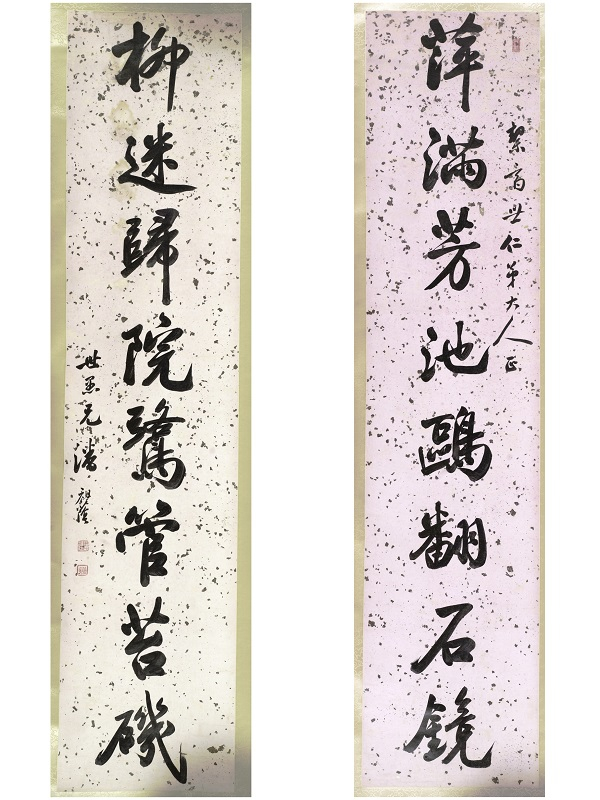 萍滿芳池鷗翻石鏡
絜齋世仁弟大人正
柳迷歸院鷺管苔磯
世愚兄潘祖蔭